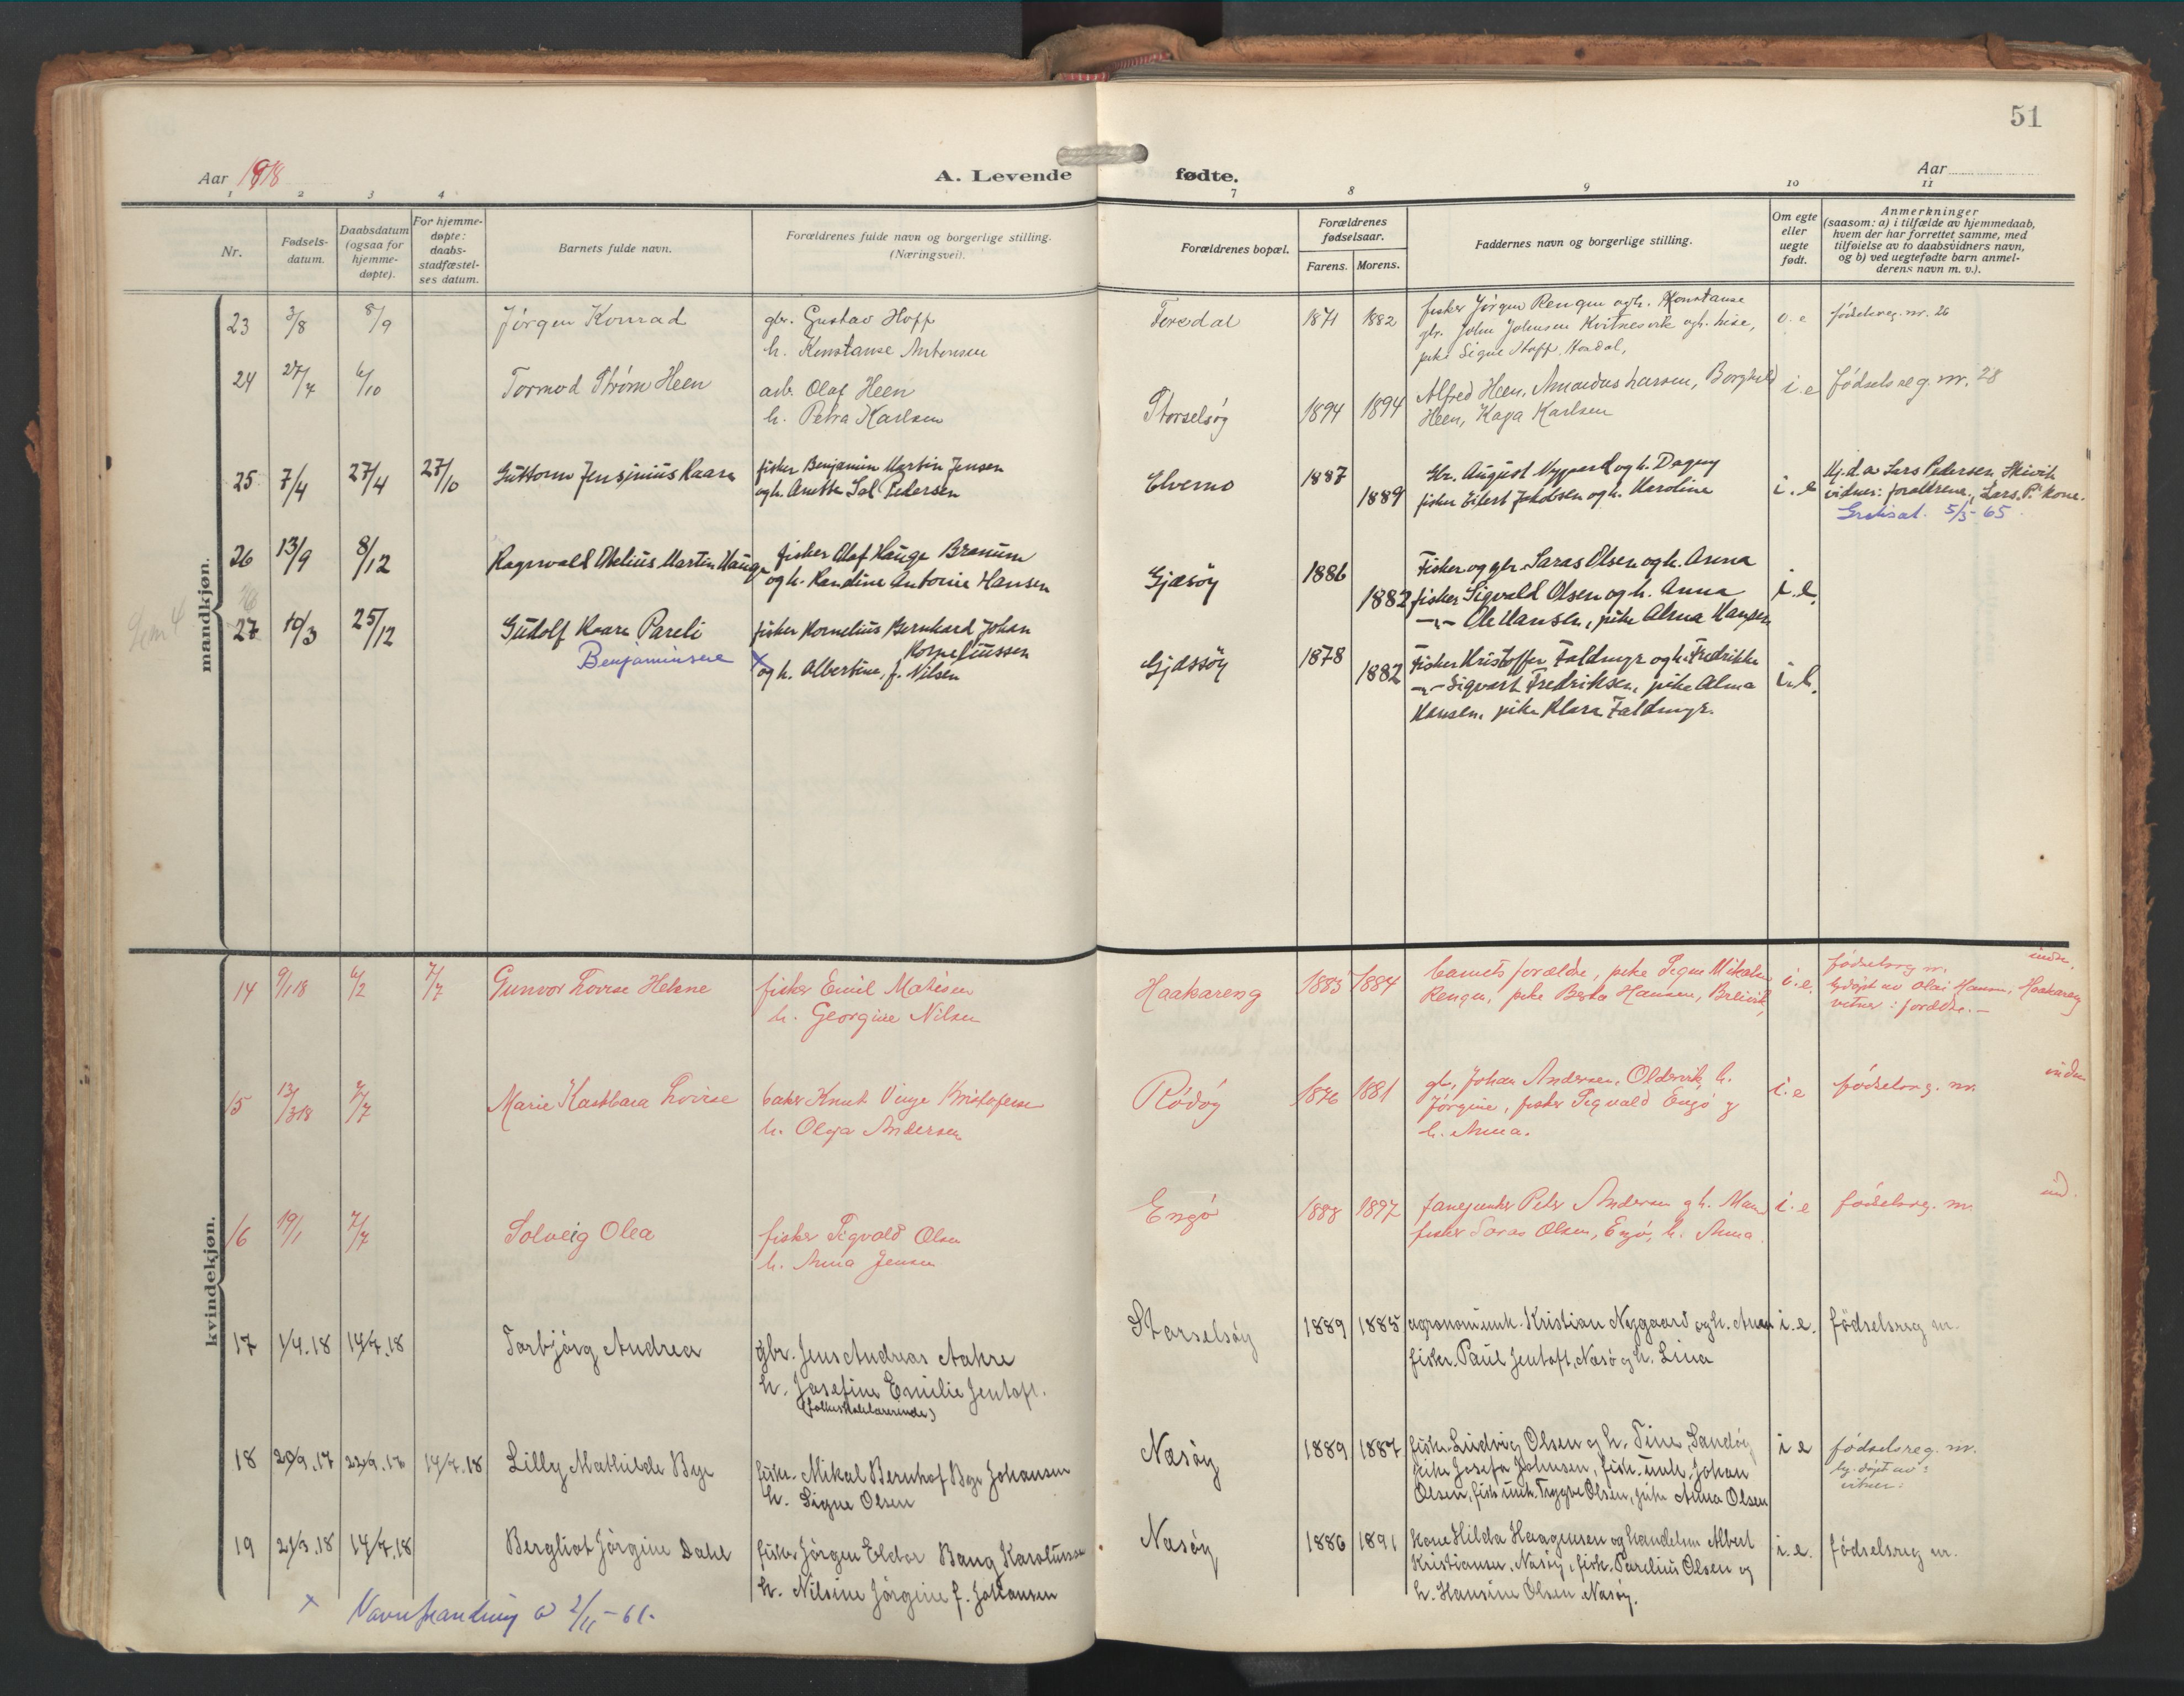 51
Aar 1918
A. Levende fødte.
Aar
1 2 3 4 7 8 9 10 11
Nr.
Fødsels-
datum.
Daabsdatum
(ogsaa for
hjemme-
døpte).
For hjemme-
døpte:
daabs-
stadfæstel-
ses datum.
Barnets fulde navn.
Forældrenes fulde navn og borgerlige stilling.
(Næringsvei).
Forældrenes bopæl.
Forældrenes
fødselsaar.
Farens. Morens.
Faddernes navn og borgerlige stilling.
Om egte
eller
uegte
født.
Anmerkninger
(saasom: a) i tilfælde av hjemmedaab,
hvem der har forrettet samme, med
tilføielse av to daabsvidners navn,
og b) ved uegtefødte barn anmel-
derens navn m. v.).
mandkjøn.
23 3/8 8/9 Jørgen Konrad
gbr. Gustav Hoff
h. Konstanse Antonsen
1871 1882
fisker Jørgen Rengen og h. Konstanse
gbr. John Johnsen Kvitnesvik og h. Lise,
pike Signe Hoff,
fødselsreg. nr. 26
24 27/7 6/10 Tormod Strøm Heen
arb. Olaf Heen
h. Petra Karlsen
Storselsøy 1894 1894
Alfred Heen, Amandus Larsen, Borghild
Heen, Kaya Karlsen
i. e Fødselsreg. nr. 28
25 7/4 27/4 27/10 Guttorm Jensinius Kaare
fisker Benjamin Martin Jensen
og h. Anette Sel. Pedersen
1887 1889
Gbr. August Nygaard og h. Dagny
fisker Eilert Jakobsen og h. Karoline
i. e
Hj.d. av Lars Petersen,
vidner: forældrene, Lars P. kone.
5/5-65
26 13/9 8/12 Ragnvald Martin Hauge
fisker Olaf Hauge
og h. Randine Antonie Hansen
Gjæsøy 1886 1882
Fisker og gbr. Saras Olsen og h. Anna
fisker Sigvald Olsen og h. Anna
Ole Hansen, pike Alma Hansen
i. e.
27 10/3 25/12 Gudolf Kaare Pareli
Benjaminsen
fisker Kornelius Bernhard Johan
Korneliussen
x og h. Albertine, f. Nilsen
Gjæssøy 1878 1882
Fisker Kristoffer Faldmyr og h. Fredrikke
Sigvart Fredriksen, pike Alma
Hansen, pike Klara Faldmyr.
i. e.
kvindekjøn.
14 9/1 18 6/2 7/7 Gunvor Lovise Helene
fisker Emil Matisen
h. Georgine Nilsen
Haakareng 1883 1884
barnets forældre, pike Signe Mikalsen
Rengen, pike Berta Hansen, Breivik,
i. e.
fødselsreg nr.
hj.døpt av Olai Hansen, Haakareng
vitner: forældre.
15 13/3 18 7/7 Marie Kastbara Lovise
baker Knut Vinge Kristofersen
h. Olga Andersen
Rødøy 1876 1881
gbr. Johan Andersen, Oldervik, h.
Jørgine, fisker Sigvald Engø og
h. Anna.
i. e fødselsreg. nr.
16 19/1 7/7 Solveig Olea
fisker Sigvald Olsen
h. Anna Jensen
Engø 1888 1897
Peter Andersen og h.
fisker Saras Olsen, Engø, h. Anna
i. e fødselsreg. nr.
17 1/4.18 14/7.18 Torbjørg Andrea
gbr. Jens Andreas Aakre
h. Josefine Emilie Jentoft.
(folkeskolelærerinde)
Storselsøy 1889 1885
agronom umk. Kristian Nygaard og h. Anna
fisker. Paul Jentoft, Næsø og h. Lina
i. e. fødselsreg nr.
18 20/9.17 22/9.17 14/7.18 Lilly Mathilde Bye
fisker. Mikal Bernhof Bye Johansen
h. Signe Olsen
Næsøy 1889 1887
fisker. Ludvig Olsen og h. Tine, Sandøy
pike Josefa Johnsen, fisk. umk. Johan
Olsen, fisk umk. Trygve Olsen, pike Anna Olsen
i e
fødselsreg. nr.
hj. døpt av:
vitner:
19 21/3.18 14/7.18 Bergliot Jørgine Dahl
fisker Jørgen Eldor Bang Karolussen
h. Nilsine Jørgine f. Johansen
Næsøy 1886 1891
Kone Hilda Haagensen og handelsm Albert
Kristiansen, Næsøy, fisk. Parelius Olsen og
h. Hansine Olsen Næsøy.
i. e. fødselsreg nr.
x Navneforandring 2/11-61.